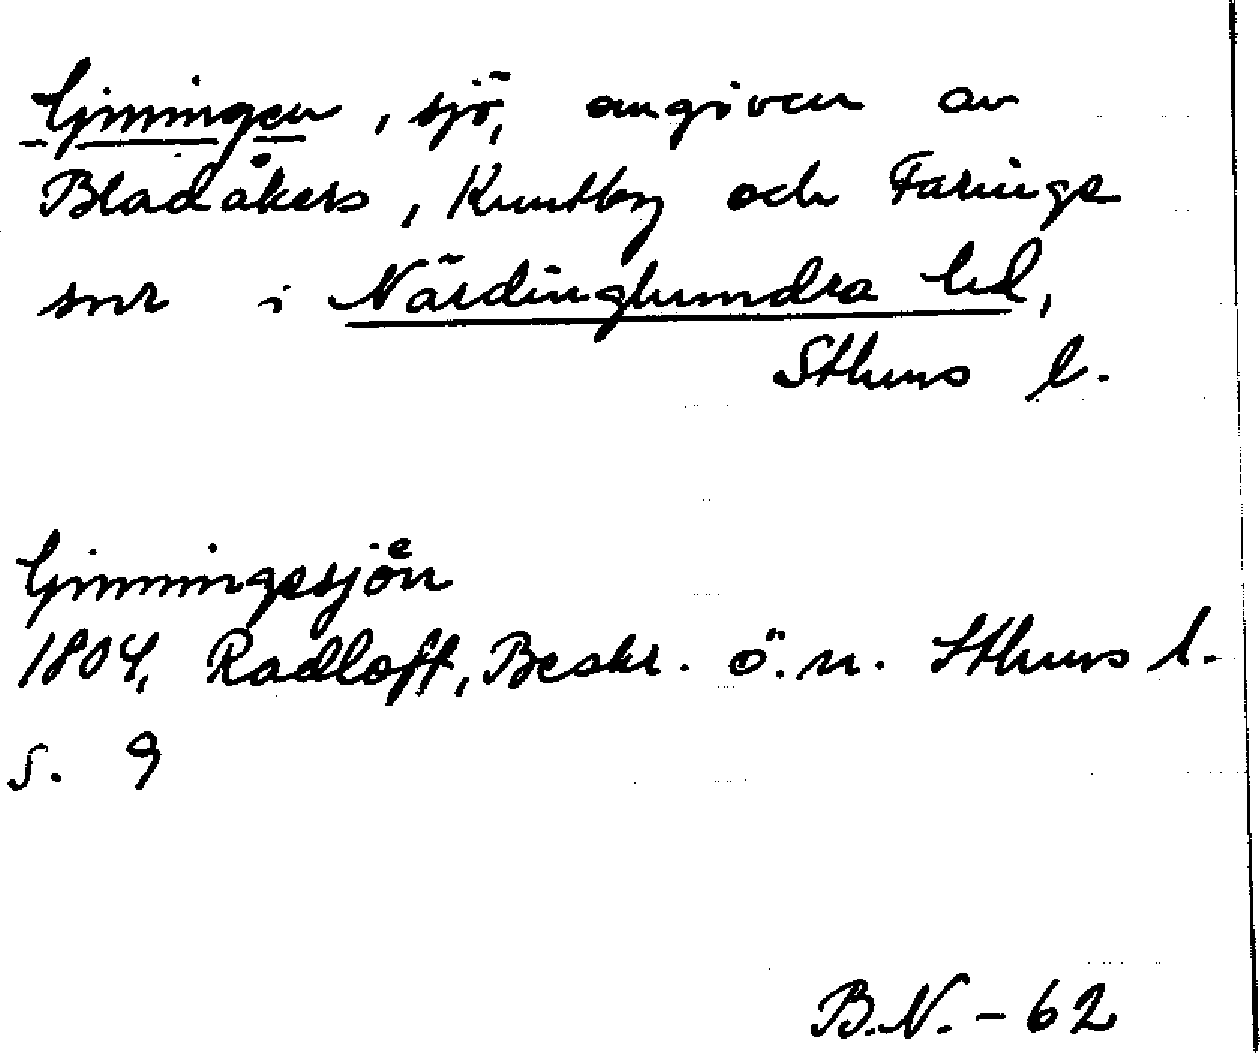 Gimningen, sjö, omgiven av
Bladåkers, Knutby och Faringe
snr i Närdinghundra hd,
Sthms l.
Gimningesjön
1804, Radloff, Beskr. ö. n. Sthms l.
s. 9
B.N. - 62